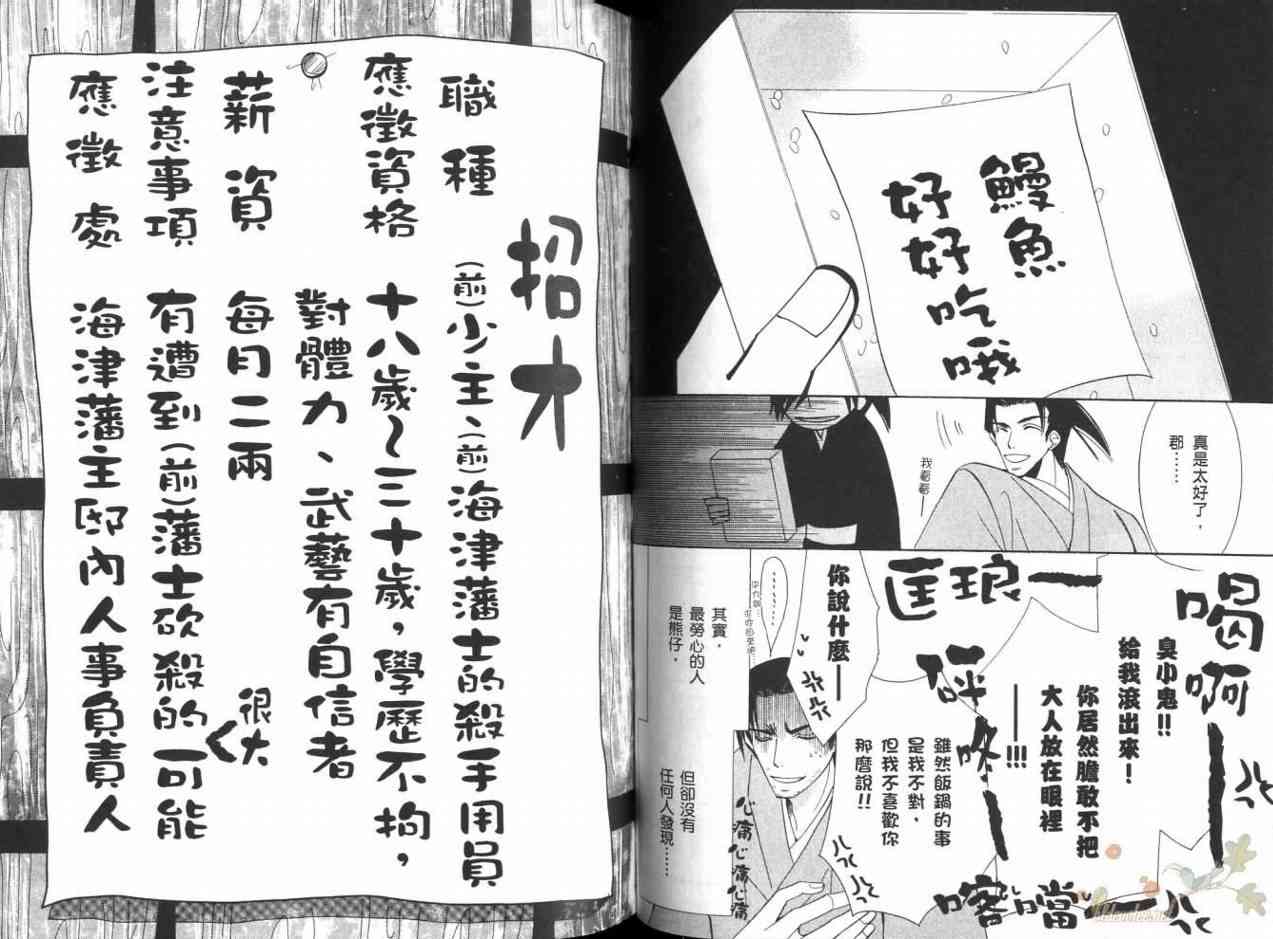 鰻魚
好好吃哦
真是太好了，
郡……
我看看
喝啊
臭小鬼!!
給我滾出來！
你居然膽敢不把
大人放在眼裡
——!!!
匡琅——
砰
咚——
喀噹——
你說什麼——
雖然飯鍋的事
是我不對，
但我不喜歡你
那麼說!!
心痛心痛心痛
其實，
最勞心的人
是熊仔，
但卻沒有
任何人發現……
招才
職種 (前)少主、(前)海津藩士的殺手用員
應徵資格 十八歲～三十歲，學歷不拘，
對體力、武藝有自信者
薪資 每月二兩
注意事項 有遭到(前)藩士砍殺的可能
很大
應徵處 海津藩主邸內人事負責人